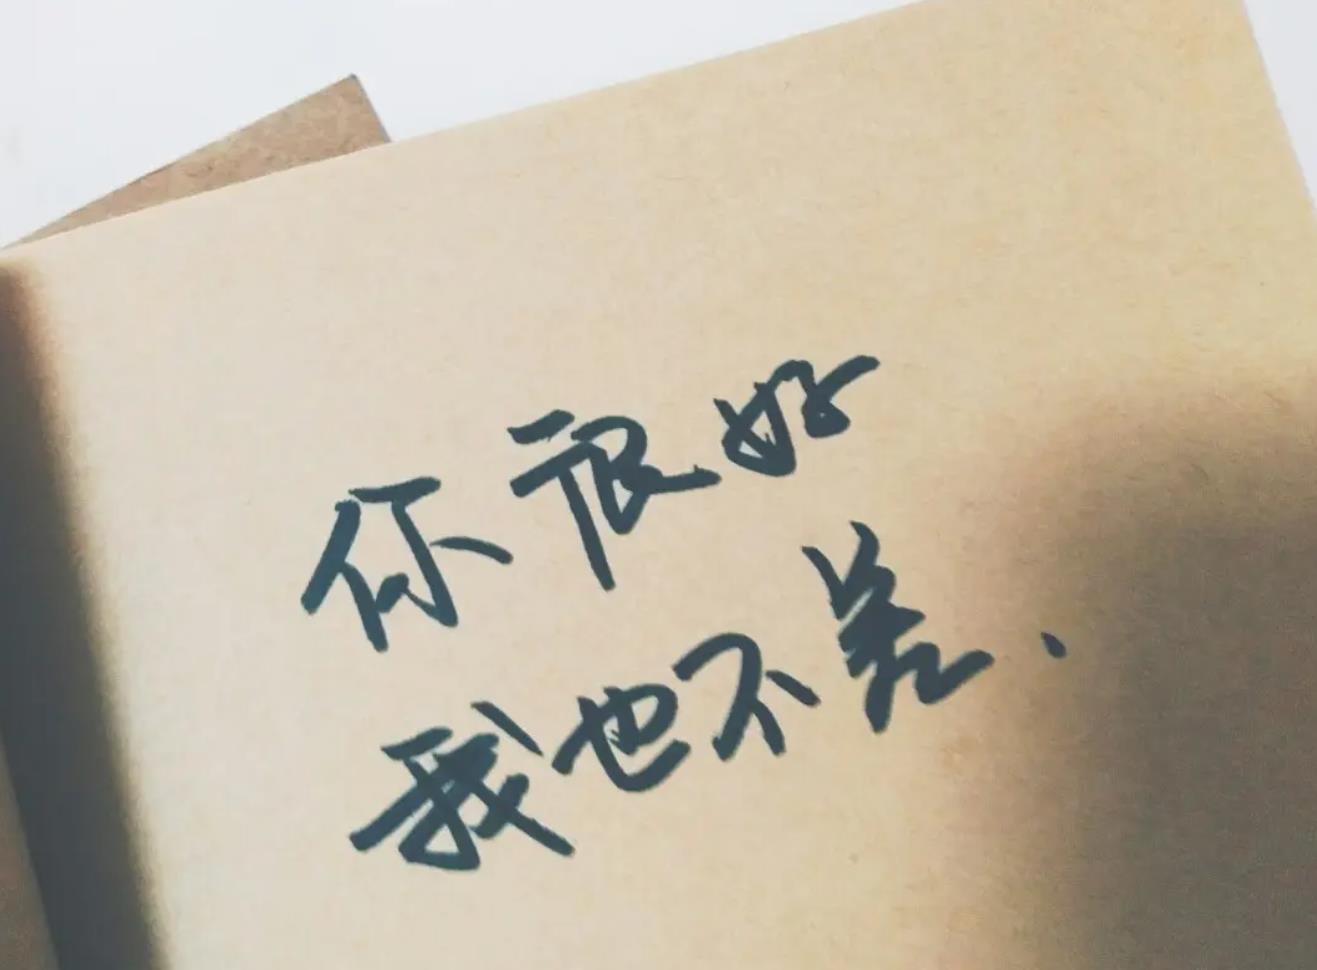 你很好
我也不差.